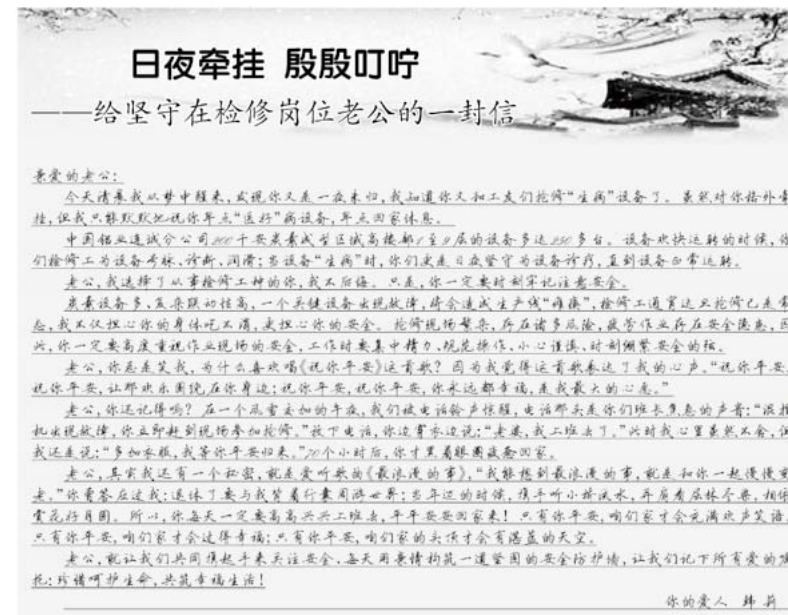 日夜牵挂 殷殷叮咛
——给坚守在检修岗位老公的一封信
亲爱的老公：
今天清晨我从梦中醒来，发现你又是一夜未归，我知道你又和工友们抢修“生病”设备了。虽然对你格外牵
挂，但我只能默默地祝你早点“医好”病设备，早点回家休息。
中国铝业连城分公司200千安炭素成型区域高楼部1至9层的设备多达250多台。设备欢快运转的时候，你
们检修工为设备号脉、诊断、润滑；当设备“生病”时，你们更是日夜坚守为设备诊疗，直到设备正常运转。
老公，我选择了从事检修工种的你，我不后悔。只是，你一定要时刻牢记注意安全。
炭素设备多、复杂联动性高，一个关键设备出现故障，将会造成生产线“瘫痪”，检修工通宵达旦抢修已是常
态，我不仅担心你的身体吃不消，更担心你的安全。抢修现场繁杂，存在诸多风险，疲劳作业存在安全隐患，因
此，你一定要高度重视作业现场的安全，工作时要集中精力、规范操作、小心谨慎、时刻绷紧安全的弦。
老公，你总是笑我，为什么喜欢唱《祝你平安》这首歌？因为我觉得这首歌表达了我的心声。“祝你平安，
祝你平安，让那快乐围绕在你身边；祝你平安，祝你平安，你永远都幸福，是我最大的心愿。”
老公，你还记得吗？在一个风雪交加的午夜，我们被电话铃声惊醒，电话那头是你们班长焦急的声音：“混捏
机出现故障，你立即赶到现场参加抢修。”放下电话，你边穿衣边说：“老婆，我上班去了。”此时我心里虽然不舍，但
我还是说：“多加衣服，我等你平安归来。”20个小时后，你才黑着眼圈疲惫回家。
老公，其实我还有一个秘密，就是爱听歌曲《最浪漫的事》，“我能想到最浪漫的事，就是和你一起慢慢变
老。”你曾答应过我：退休了要与我背着行囊周游世界；当年迈的时候，携手听小桥流水，并肩看层林尽染，相伴
赏花好月圆。所以，你每天一定要高高兴兴上班去，平平安安回家来！只有你平安，咱们家才会充满欢声笑语，
只有你平安，咱们家才会过得幸福；只有你平安，咱们家的头顶才会有湛蓝的天空。
老公，就让我们共同携起手来关注安全，每天用亲情构筑一道坚固的安全防护墙，让我们记下所有爱的嘱
托：珍惜呵护生命，共筑幸福生活！
你的爱人 韩莉